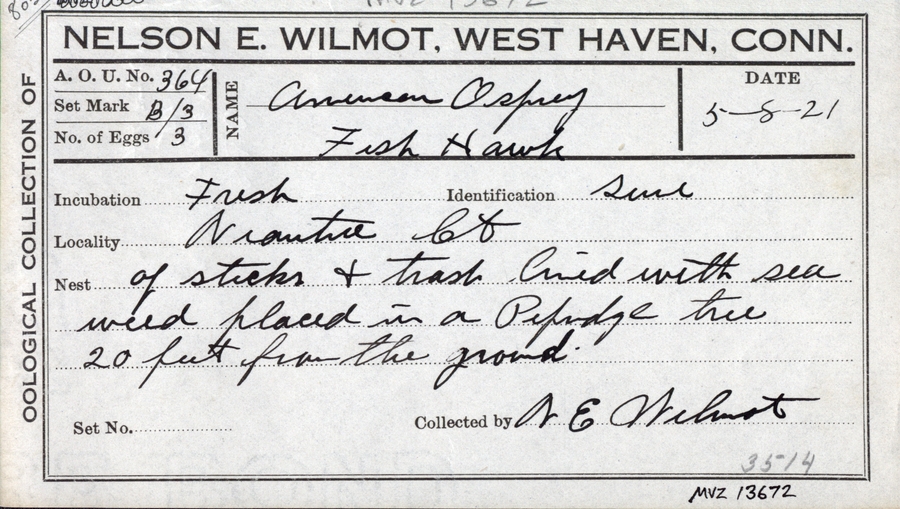 MVZ 13672
OOLOGICAL COLLECTION OF
NELSON E. WILMOT, WEST HAVEN, CONN.
A. O. U. No. 364
Set Mark B/3
No. of Eggs 3
NAME
American Osprey
Fish Hawk
DATE
5-8-21
Incubation Fresh Identification Sure
Locality Niantic Ct
Nest of sticks + trash lined with sea
weed placed in a Pepridge tree
20 feet from the ground.
Set No. Collected by N E Wilmot
3514
MVZ 13672